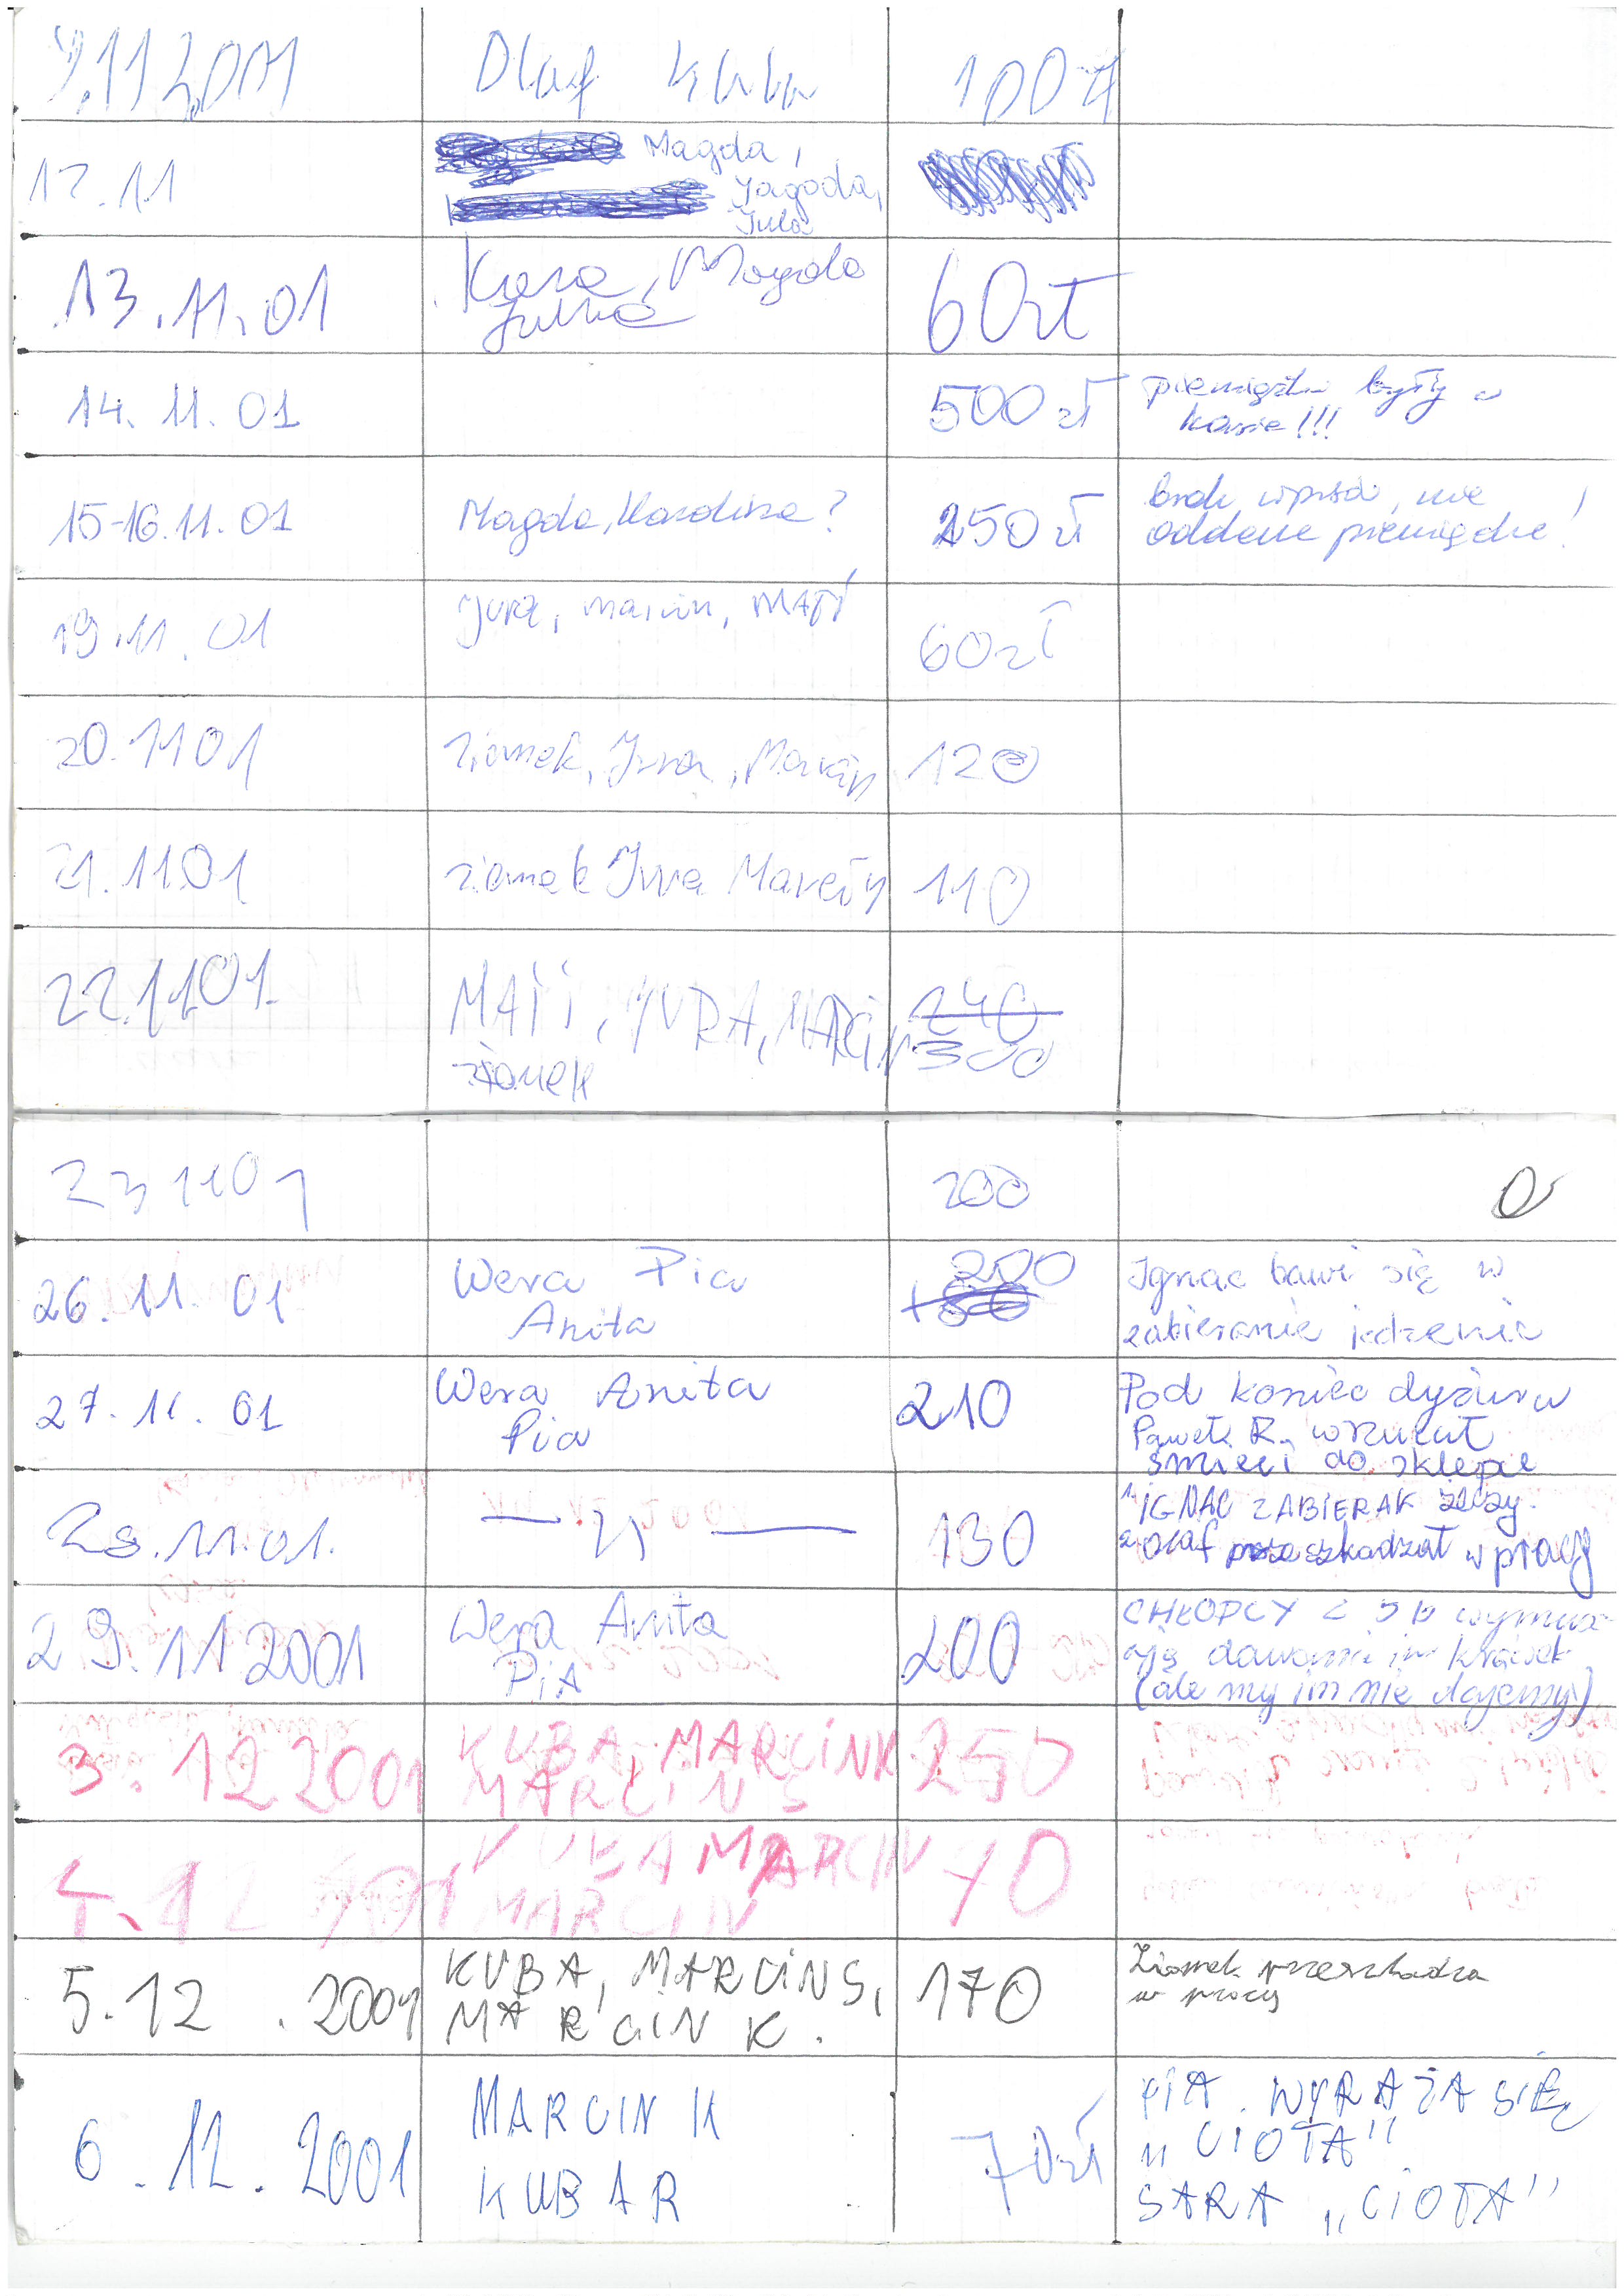 9.11 2001 Olaf Kuba 100 zł
12.11 Magda,
Jagoda,
Jula
13.11.01 Kasia, Magda
Julka 60zł
14.11.01 500 zł pieniądze były w
kasie!!!
15-16.11.01 Magda, Karolina? 250 zł brak wpisu, nie
oddane pieniądze!
19.11.01 Jura, Marcin, MATi 60zł
20.11 01 Ziomek, Jura, Marcin 120
21.11.01 Ziomek Jura Marcin 110
22.11 01. MATi, JURA, MARCiN 240
Ziomek 300
23 11 01 200 0
26.11 01 Wera Pia 200 Ignac bawi się w
Anita +80 zabieranie jedzenia
27.11.01 Wera Anita 210 Pod koniec dyżuru
Pia Paweł R. wrzucał
śmieci do sklepie
28.11.01. — 〃 — 130 1. iGNAC ZABIERAŁ rzeczy.
2 Olaf przeszkadzał w pracy
29.11 2001 Wera Anita 200 CHŁOPCY z 5 b wymusz-
PiA ają dawanie im krówek
(ale my im nie dajemy)
3.12 2001 KUBA, MARCiN K 250
MARCiN S
4.12 2001 KUBA MARCIN 70
MARCIN
5.12.2001 KUBA, MARCiN S, 170 Ziomek przeszkadza
MARCiN K. w pracy
6.12.2001 MARCIN K 70zł PiA WYRAŻA SiĘ
KUBA R „CIOTA”
SARA „CiOTA”